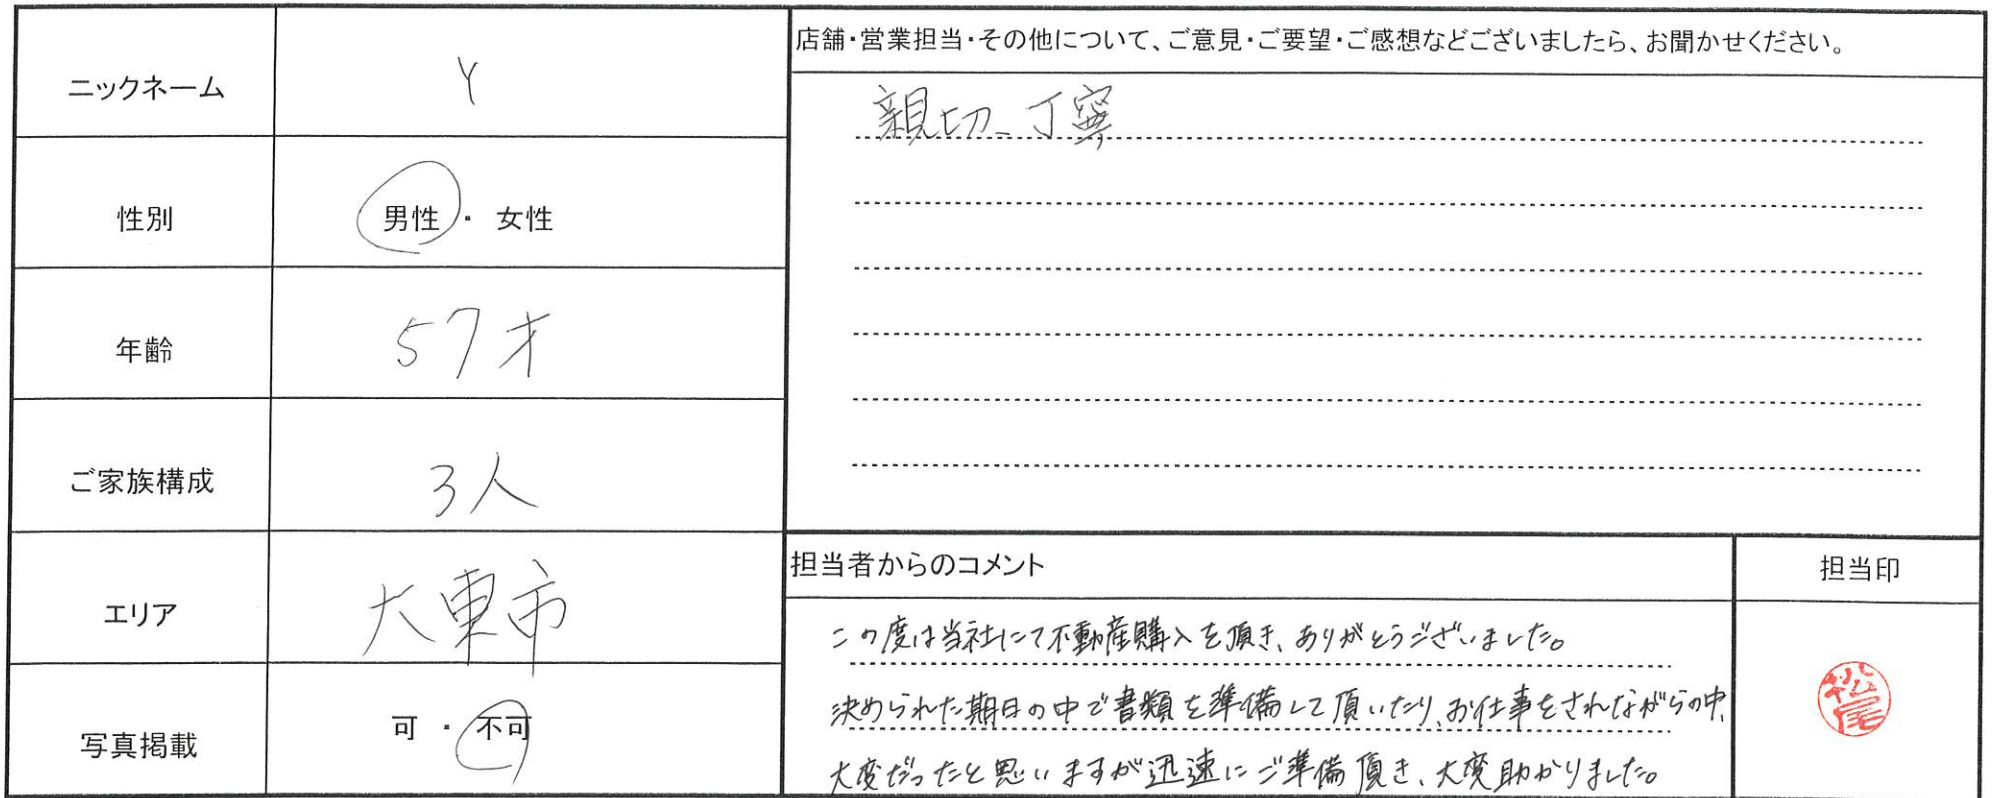 ニックネーム
Y
性別
男性・女性
年齢
57才
ご家族構成
3人
エリア
大東市
写真掲載
可・不可
店舗・営業担当・その他について、ご意見・ご要望・ご感想などございましたら、お聞かせください。
親切、丁寧
担当者からのコメント
この度は当社にて不動産購入を頂き、ありがとうございました。
決められた期日の中で書類を準備して頂いたり、お仕事をされながらの中、
大変だったと思いますが迅速にご準備頂き、大変助かりました。
担当印
松尾